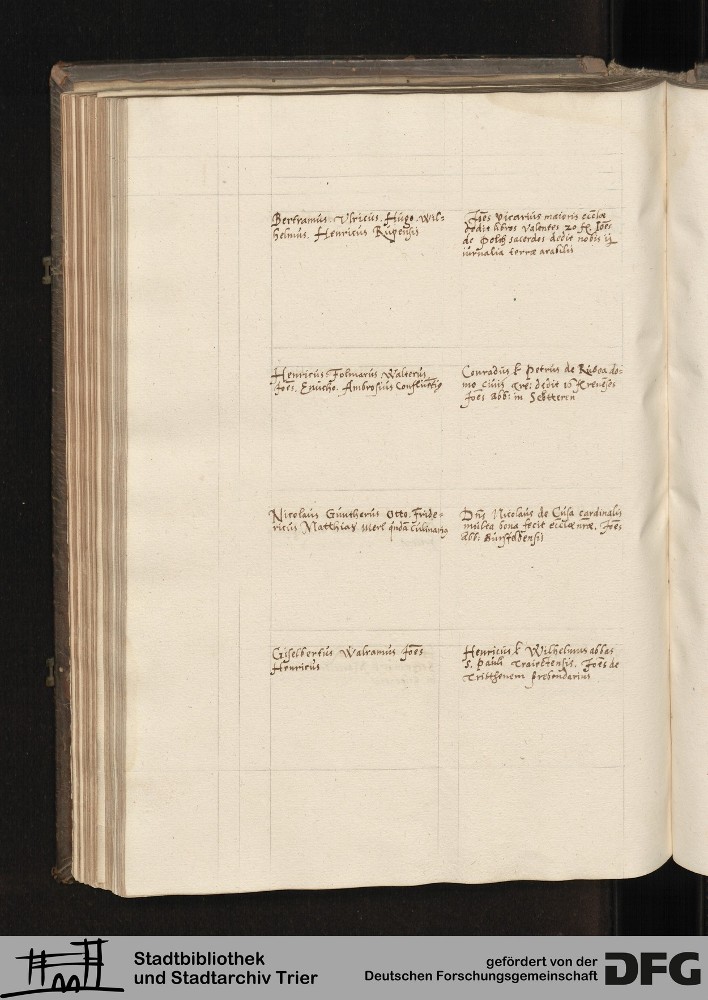 Bertramus. Ulricus. Hugo. Wil=
helmus. Henricus Rupensis
Joēs vicarius maioris eccliæ
dedit libros valentes 20 fl. Joēs
de Polch sacerdos dedit nobis ij
iurnalia terræ arabilis
Henricus. Folmarus Walterus.
Joēs. Ambrosius Confluētiæ
Conradus & Petrus de Rubea do=
mo civis Tre: dedit
Joēs abb: in
Nicolaus Guntherus Otto. Fride=
ricus Matthias Merl quōdā culinariꝰ
Dn̄s Nicolaus de Cusa cardinalis
multa bona fecit eccliæ nræ. Joēs
abb: Bursfeldensis
Giselbertus Walramus Joēs
Henricus
Henricus & Wilhelmus abbas
S. Pauli Traiectensis. Joēs de
prebendarius
Stadtbibliothek
und Stadtarchiv Trier
gefördert von der
Deutschen Forschungsgemeinschaft
DFG